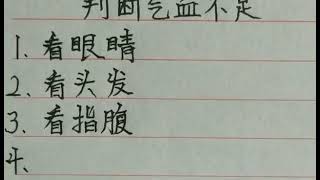 判断气血不足
1、看眼睛
2、看头发
3、看指腹
4、